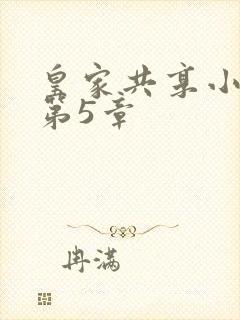 皇家共享小
第5章
冉满